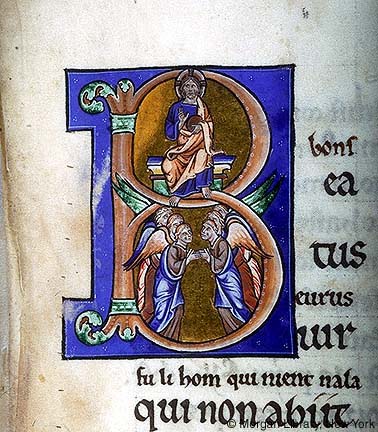 B
bonſ
ea
tus
eurus
uir
fu li hom qui nient nala
qui non abiit
© Morgan Library, New York